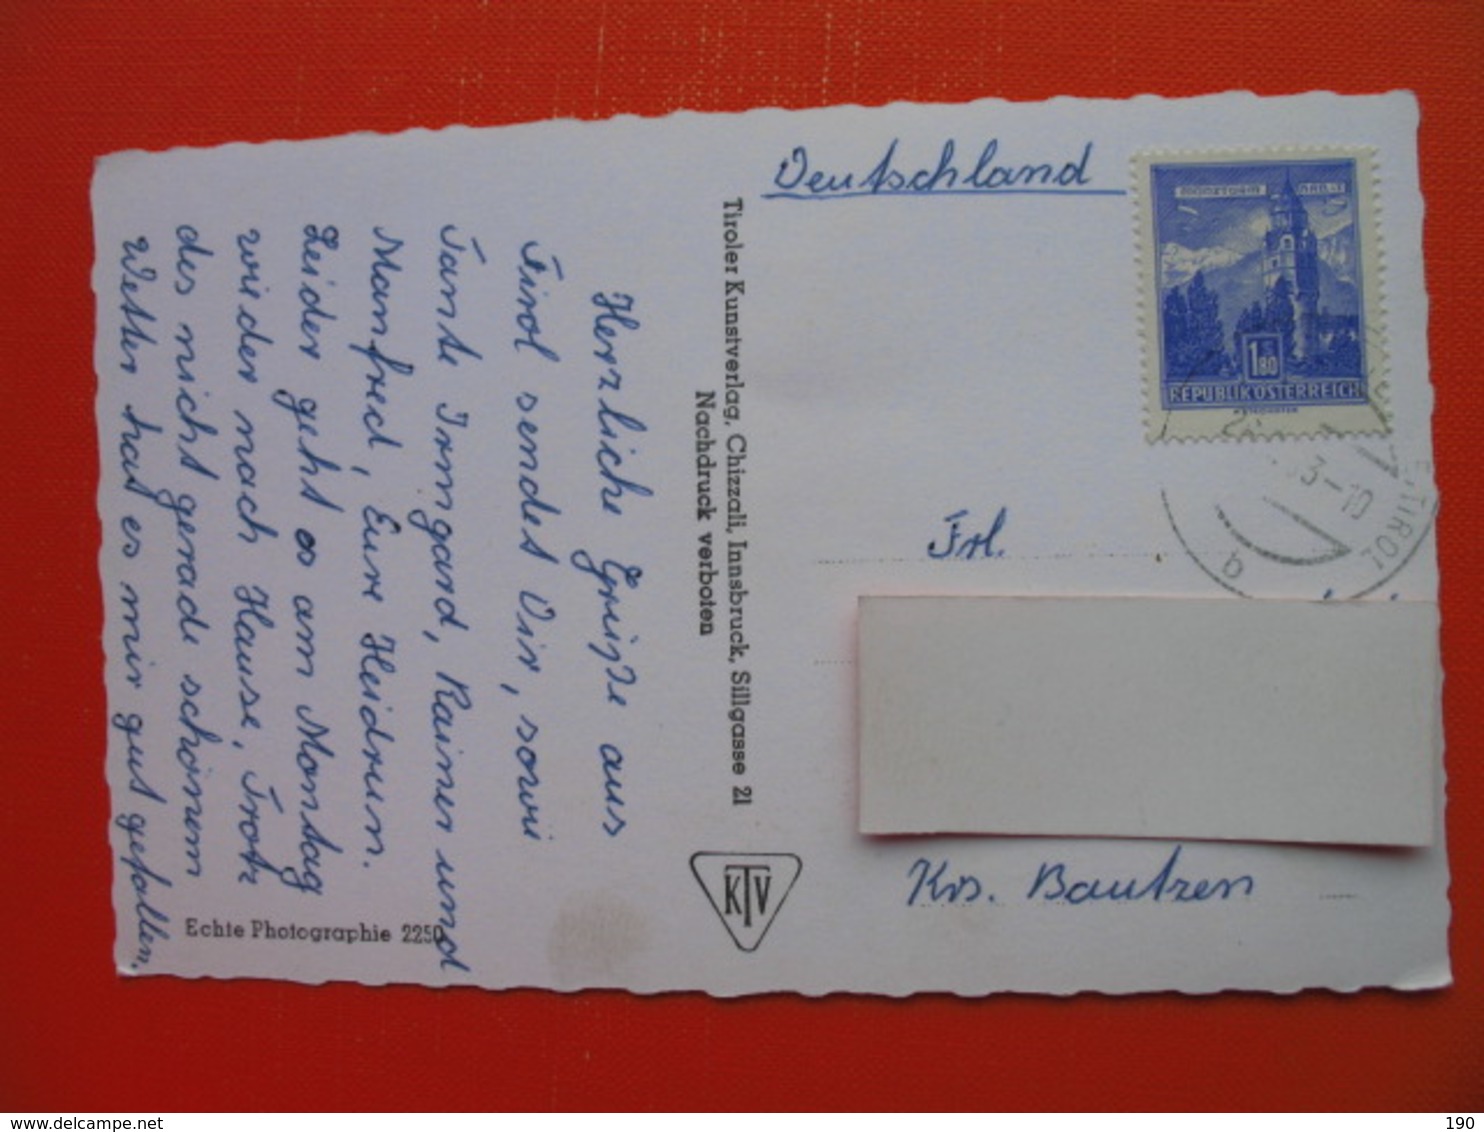 Herzliche Grüße aus
Tirol sendet Dir, sowie
Tante Irmgard, Rainer und
Manfred, Eure Heidrun.
Leider geht es am Montag
wieder nach Hause. Trotz
des nicht gerade schönem
Wetter hat es mir gut gefallen.
Echte Photographie 2250
Tiroler Kunstverlag, Chizzali, Innsbruck, Sillgasse 21
Nachdruck verboten
KTV
Deutschland
1.80
REPUBLIK ÖSTERREICH
3-10
TIROL
b
Frl.
Krs. Bautzen
delcampe.net
190